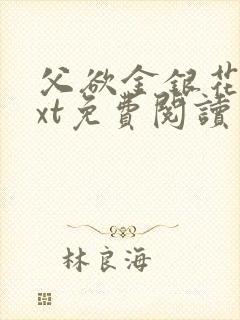 父欲金銀花
xt免費閱讀
林良海